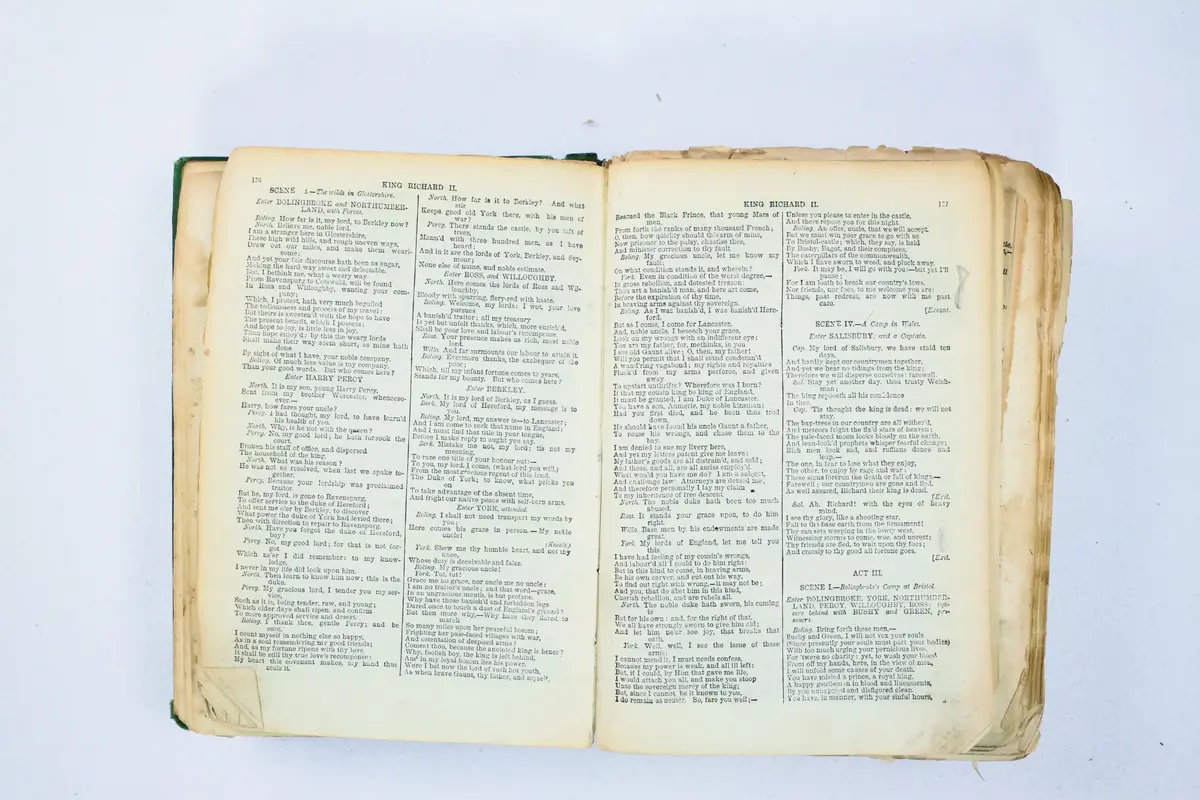 176
KING RICHARD II.
SCENE I.—The wilds in Glostershire.
Enter BOLINGBROKE and NORTHUMBER-
LAND, with Forces.
Boling. How far is it, my lord, to Berkley now?
North. Believe me, noble lord,
I am a stranger here in Glostershire,
These high wild hills, and rough uneven ways,
Draw out our miles, and make them weari-
some;
And yet your fair discourse hath been as sugar,
Making the hard way sweet and delectable.
But, I bethink me, what a weary way
From Ravenspurg to Cotswold, will be found
In Ross and Willoughby, wanting your com-
pany;
Which, I protest, hath very much beguiled
The tediousness and process of my travel:
But theirs is sweeten'd with the hope to have
The present benefit, which I possess:
And hope to joy, is little less in joy,
Than hope enjoy'd; by this the weary lords
Shall make their way seem short, as mine hath
done
By sight of what I have, your noble company.
Boling. Of much less value is my company,
Than your good words. But who comes here?
Enter HARRY PERCY
North. It is my son, young Harry Percy,
Sent from my brother Worcester, whenceso-
ever.—
Harry, how fares your uncle?
Percy. I had thought, my lord, to have learn'd
his health of you.
North. Why, is he not with the queen?
Percy. No, my good lord; he hath forsook the
court,
Broken his staff of office, and dispersed
The household of the king.
North. What was his reason?
He was not so resolved, when last we spake to-
gether.
Percy. Because your lordship was proclaimed
traitor.
But he, my lord, is gone to Ravenspurg,
To offer service to the duke of Hereford;
And sent me o'er by Berkley, to discover
What power the duke of York had levied there;
Then with direction to repair to Ravenspurg.
North. Have you forgot the duke of Hereford,
boy?
Percy. No, my good lord; for that is not for-
got
Which ne'er I did remember: to my know-
ledge,
I never in my life did look upon him.
North. Then learn to know him now; this is the
duke.
Percy. My gracious lord, I tender you my ser-
vice,
Such as it is, being tender, raw, and young;
Which elder days shall ripen, and confirm
To more approved service and desert.
Boling. I thank thee, gentle Percy; and be
sure,
I count myself in nothing else so happy,
As in a soul rememb'ring my good friends;
And, as my fortune ripens with thy love,
It shall be still thy true love's recompense:
My heart this covenant makes, my hand thus
seals it.
North. How far is it to Berkley? And what
stir
Keeps good old York there, with his men of
war?
Percy. There stands the castle, by yon tuft of
trees,
Mann'd with three hundred men, as I have
heard:
And in it are the lords of York, Berkley, and Sey-
mour;
None else of name, and noble estimate.
Enter ROSS, and WILLOUGHBY.
North. Here comes the lords of Ross and Wil-
loughby,
Bloody with spurring, fiery-red with haste.
Boling. Welcome, my lords: I wot, your love
pursues
A banish'd traitor; all my treasury
Is yet but unfelt thanks, which, more enrich'd,
Shall be your love and labour's recompense.
Ross. Your presence makes us rich, most noble
lord.
Willo. And far surmounts our labour to attain it.
Boling. Evermore thanks, the exchequer of the
poor;
Which, till my infant fortune comes to years,
Stands for my bounty. But who comes here?
Enter BERKLEY.
North. It is my lord of Berkley, as I guess.
Berk. My lord of Hereford, my message is to
you.
Boling. My lord, my answer is—to Lancaster;
And I am come to seek that name in England:
And I must find that title in your tongue,
Before I make reply to aught you say.
Berk. Mistake me not, my lord; 'tis not my
meaning,
To raze one title of your honour out:—
To you, my lord, I come, (what lord you will,)
From the most gracious regent of this land,
The Duke of York; to know, what pricks you
on
To take advantage of the absent time,
And fright our native peace with self-born arms.
Enter YORK, attended.
Boling. I shall not need transport my words by
you;
Here comes his grace in person.—My noble
uncle! (Kneels.)
York. Shew me thy humble heart, and not thy
knee,
Whose duty is deceivable and false.
Boling. My gracious uncle!
York. Tut, tut!
Grace me no grace, nor uncle me no uncle:
I am no traitor's uncle; and that word—grace,
In an ungracious mouth, is but profane.
Why have those banish'd and forbidden legs
Dared once to touch a dust of England's ground?
But then more why,—Why have they dared to
march
So many miles upon her peaceful bosom;
Frighting her pale-faced villages with war,
And ostentation of despised arms?
Comest thou, because the anointed king is hence?
Why, foolish boy, the king is left behind,
And in my loyal bosom lies his power.
Were I but now the lord of such hot youth,
As when brave Gaunt, thy father, and myself,
KING RICHARD II.
177
Rescued the Black Prince, that young Mars of
men,
From forth the ranks of many thousand French;
O, then, how quickly should this arm of mine,
Now prisoner to the palsy, chastise thee,
And minister correction to thy fault
Boling. My gracious uncle, let me know my
fault:
On what condition stands it, and wherein?
York. Even in condition of the worst degree,—
In gross rebellion, and detested treason
Thou art a banish'd man, and here art come,
Before the expiration of thy time,
In braving arms against thy sovereign.
Boling. As I was banish'd, I was banish'd Here-
ford,
But as I come, I come for Lancaster.
And, noble uncle, I beseech your grace,
Look on my wrongs with an indifferent eye:
You are my father, for, methinks, in you
I see old Gaunt alive; O, then, my father!
Will you permit that I shall stand condemn'd
A wand'ring vagabond; my rights and royalties
Pluck'd from my arms perforce, and given
away
To upstart unthrifts? Wherefore was I born?
If that my cousin king be king of England,
It must be granted, I am Duke of Lancaster.
You have a son, Aumerle, my noble kinsman:
Had you first died, and he been thus trod
down,
He should have found his uncle Gaunt a father,
To rouse his wrongs, and chase them to the
bay.
I am denied to sue my livery here,
And yet my letters patent give me leave:
My father's goods are all distrain'd, and sold;
And these, and all, are all amiss employ'd.
What would you have me do? I am a subject,
And challenge law: Attorneys are denied me;
And therefore personally I lay my claim
To my inheritence of free descent.
North. The noble duke hath been too much
abused.
Ross. It stands your grace upon, to do him
right.
Willo. Base men by his endowments are made
great.
York. My lords of England, let me tell you
this,
I have had feeling of my cousin's wrongs,
And labour'd all I could to do him right:
But in this kind to come, in braving arms,
Be his own carver, and cut out his way,
To find out right with wrong,—it may not be;
And you, that do abet him in this kind,
Cherish rebellion, and are rebels all.
North. The noble duke hath sworn, his coming
is
But for his own: and, for the right of that,
We all have strongly sworn to give him aid;
And let him ne'er see joy, that breaks that
oath.
York. Well, well, I see the issue of these
arms;
I cannot mend it, I must needs confess,
Because my power is weak, and all ill left:
But, if I could, by Him that gave me life,
I would attach you all, and make you stoop
Unto the sovereign mercy of the king;
But, since I cannot, be it known to you,
I do remain as neuter. So, fare you well;—
Unless you please to enter in the castle,
And there repose you for this night.
Boling. An offer, uncle, that we will accept.
But we must win your grace to go with us
To Bristol-castle; which, they say, is held
By Bushy, Bagot, and their complices,
The caterpillars of the commonwealth,
Which I have sworn to weed, and pluck away.
York. It may be, I will go with you:—but yet I'll
pause;
For I am loath to break our country's laws.
Nor friends, nor foes, to me welcome you are:
Things, past redress, are now with me past
care.
[Exeunt.
SCENE IV.—A Camp in Wales.
Enter SALISBURY, and a Captain.
Cap. My lord of Salisbury, we have staid ten
days,
And hardly kept our countrymen together,
And yet we hear no tidings from the king;
Therefore we will disperse ourselves: farewell.
Sal. Stay yet another day, thou trusty Welsh-
man;
The king reposeth all his confidence
In thee.
Cap. 'Tis thought the king is dead: we will not
stay.
The bay-trees in our country are all wither'd,
And meteors fright the fix'd stars of heaven;
The pale-faced moon looks bloody on the earth,
And lean-look'd prophets whisper fearful change;
Rich men look sad, and ruffians dance and
leap,—
The one, in fear to lose what they enjoy,
The other, to enjoy by rage and war:
These signs forerun the death or fall of kings.—
Farewell; our countrymen are gone and fled,
As well assured, Richard their king is dead.
[Exit.
Sal. Ah, Richard! with the eyes of heavy
mind,
I see thy glory, like a shooting star,
Fall to the base earth from the firmament!
Thy sun sets weeping in the lowly west,
Witnessing storms to come, woe, and unrest;
Thy friends are fled, to wait upon thy foes;
And crossly to thy good all fortune goes.
[Exit.
ACT III.
SCENE I.—Bolingbroke's Camp at Bristol.
Enter BOLINGBROKE, YORK, NORTHUMBER-
LAND, PERCY, WILLOUGHBY, ROSS: Offi-
cers behind with BUSHY and GREEN, pri-
soners.
Boling. Bring forth these men.—
Bushy and Green, I will not vex your souls
(Since presently your souls must part your bodies)
With too much urging your pernicious lives,
For 'twere no charity: yet, to wash your blood
From off my hands, here, in the view of men,
I will unfold some causes of your death.
You have misled a prince, a royal king,
A happy gentleman in blood and lineaments,
By you unhappied and disfigured clean.
You have, in manner, with your sinful hours,